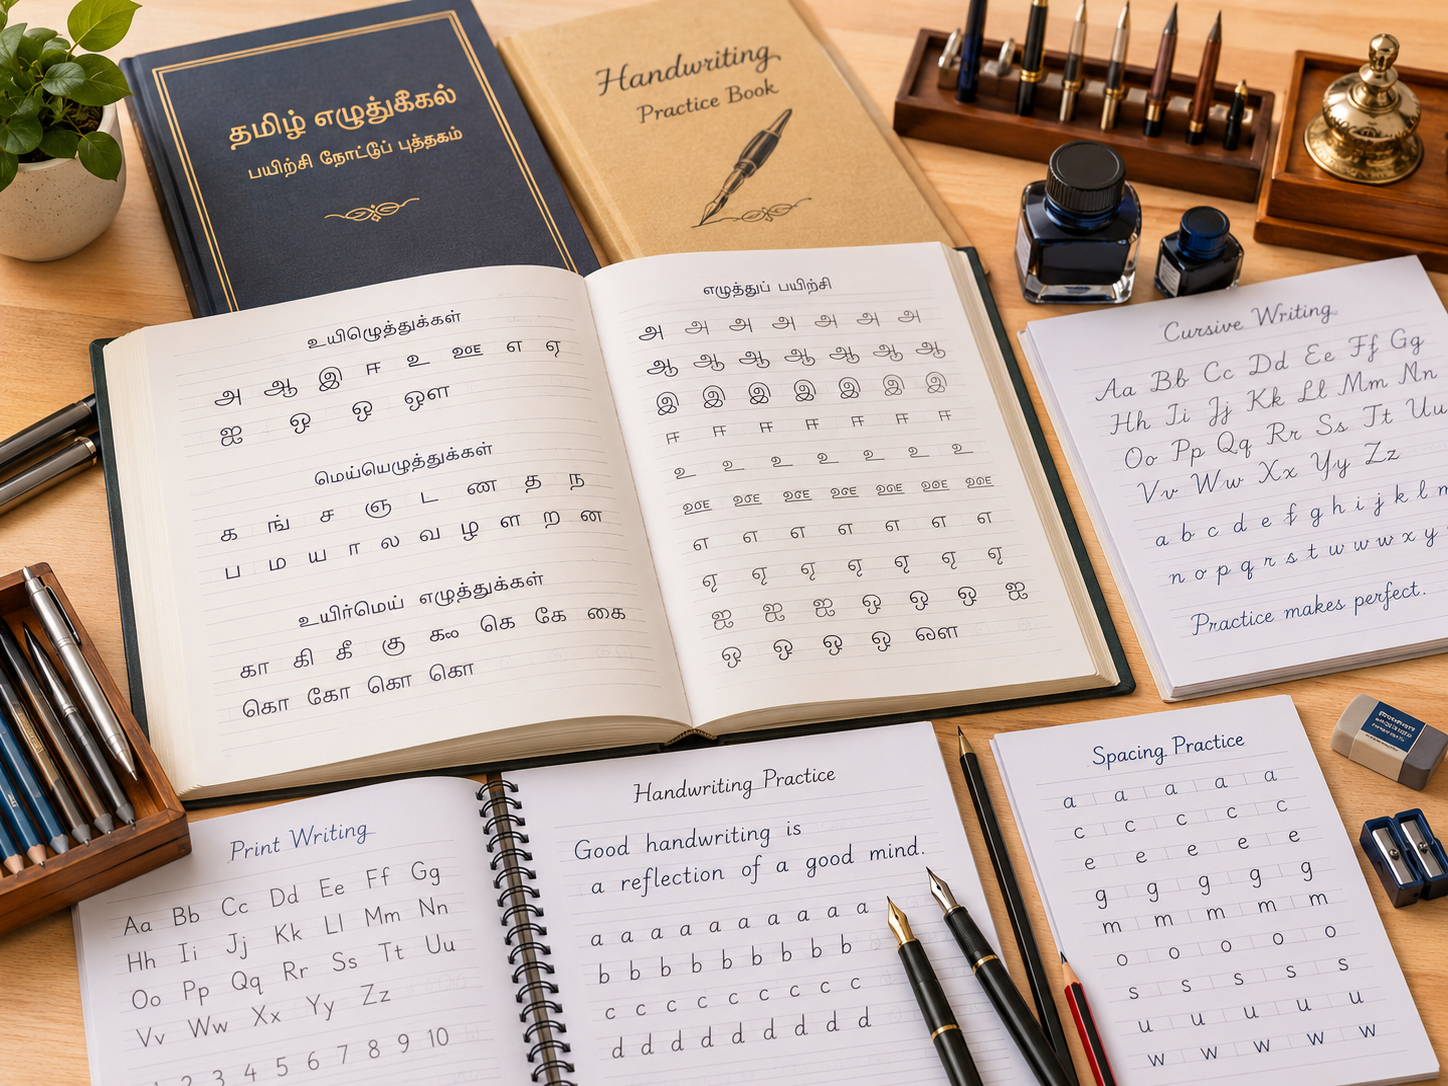 தமிழ் எழுத்துகீகல்
பயிற்சி நோட்டுப் புத்தகம்
Handwriting
Practice Book
உயிழெுத்துக்கள்
அ ஆ இ ஈ உ ஊ எ ஏ
ஐ ஒ ஒ ஔ
மெய்யெழுத்துக்கள்
க ங் ச ஞ ட ண த ந
ப ம ய ா ல வ ழ ள ற ன
உயிர்மெய் எழுத்துக்கள்
கா கி கீ கு கெ கே கை
கொ கோ கொ கொ
எழுத்துப் பயிற்சி
அ அ அ அ அ அ அ
ஆ ஆ ஆ ஆ ஆ ஆ ஆ
இ இ இ இ இ இ இ
ஈ ஈ ஈ ஈ ஈ ஈ ஈ
உ உ உ உ உ உ உ
எ எ எ எ எ எ எ
ஏ ஏ ஏ ஏ ஏ ஏ ஏ
ஐ ஐ ஐ ஒ ஒ ஒ ஐ
ஒ ஒ ஒ ஒ ஔ
Cursive Writing
Aa Bb Cc Dd Ee Ff Gg
Hh Ii Jj Kk Ll Mm Nn
Oo Pp Qq Rr Ss Tt Uu
Vv Ww Xx Yy Zz
a b c d e f g h i j k l m
n o p q r s t w w w x y
Practice makes perfect.
Print Writing
Aa Bb Cc Dd Ee Ff Gg
Hh Ii Jj Kk Ll Mm Nn
Oo Pp Qq Rr Ss Tt Uu
Vv Ww Xx Yy Zz
2 3 4 5 6 7 8 9 10
Handwriting Practice
Good handwriting is
a reflection of a good mind.
a a a a a a a a a a
b b b b b b b b b
c c c c c c c c c
d d d d d d d d d
Spacing Practice
a a a a a
c c c c c
e e e e e
g g g g g
m m m m m
o o o o o
s s s s s
u u u u u
w w w w w